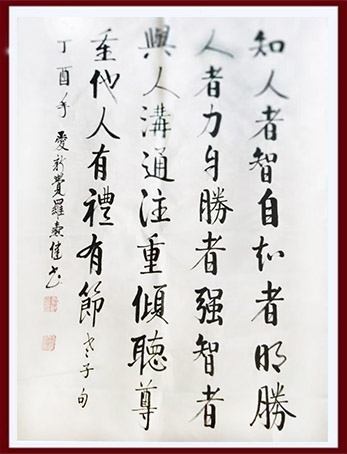 知人者智自知者明勝
人者力自勝者强智者
與人溝通注重傾聽尊
重他人有禮有節老子句
丁酉年愛新覺羅佳书